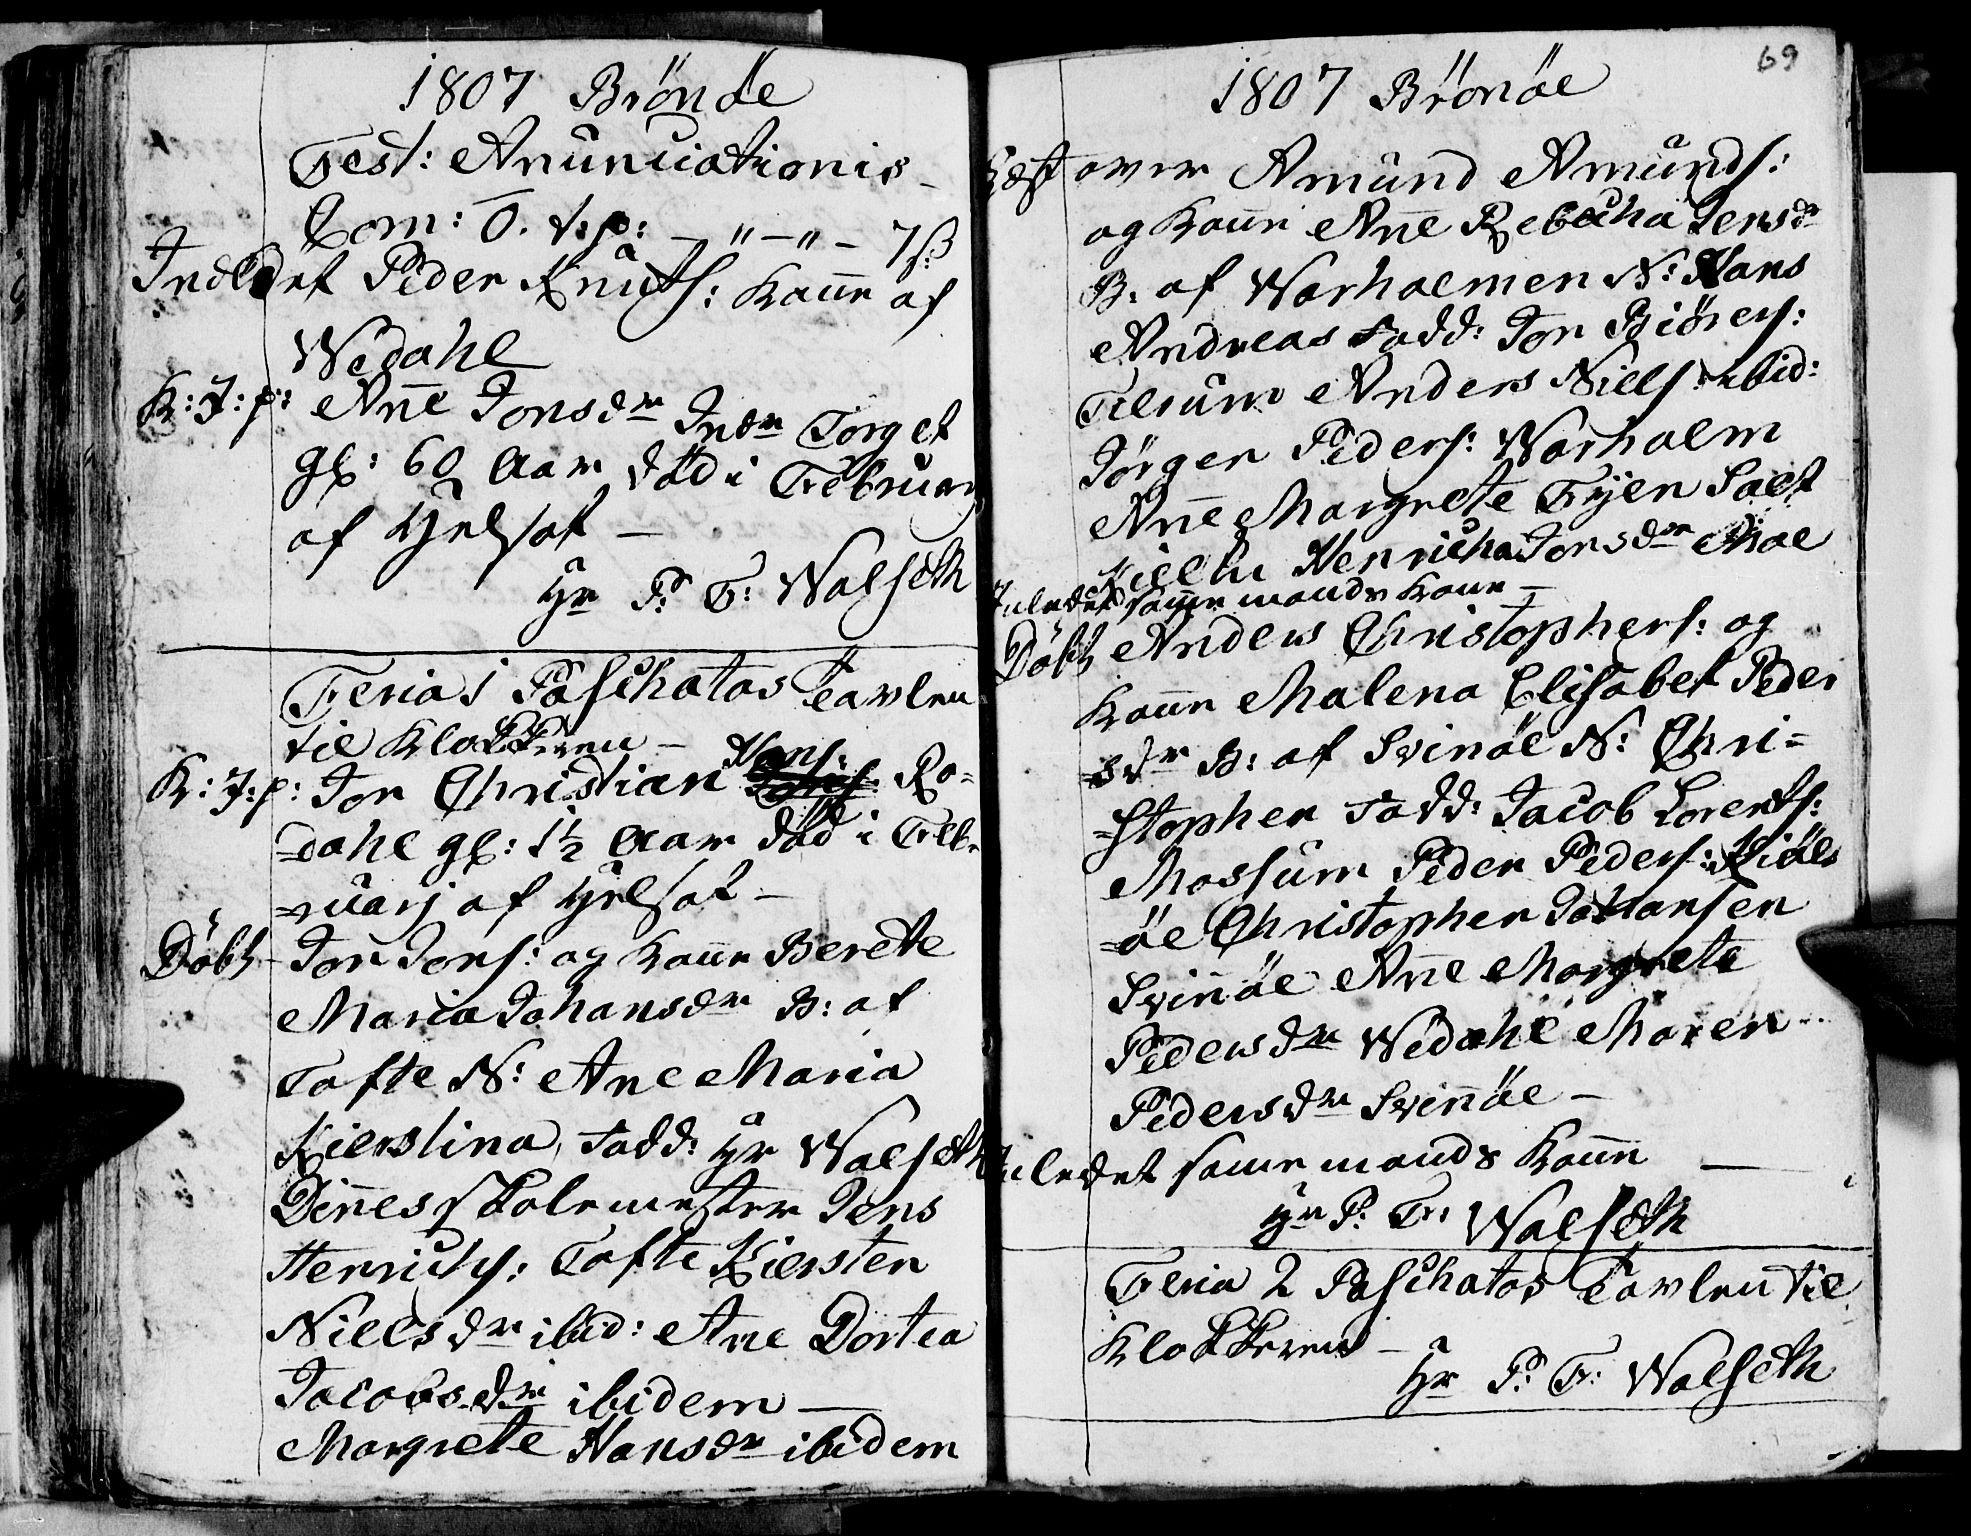 1807 Brönöe
Fest: Anunciationis –
Dom: O. t: p: – " – " – 7 ß
Indledet Peder Knuts: Kone af
Wedahl
K: J: p: Anne Jonsdr Indr Torget
gl: 60 Aar död i Februarj
af Helsot –
Hr P: F: Walseth
Feria 1 Paschatos Tavlen
til Klokkeren –
K: J: p: Jon Christian Hans: Ro=
=dahl gl: 1½ Aar död i Feb=
=ruarj af Helsot –
Döbt Jon Jons: og Kone Berete
Maria Johansdr B: af
Tofte N: Ane Maria
Kierstina, Fadd: Hr Walseth
Dines Skolemester Jens
Henrichs: Tofte Kiersten
Nielsdr ibid: Ane Dortea
Jacobsdr ibidem –
Margrete Hansdr ibidem
69
1807 Brönöe
Læst over Amund Amunds:
og Kone Ane Rebecha Jensdr
B: af Warholmen N: Hans
Andreas Fadd: Jon Biörs:
Tilrum Anders Niels: ibid:
Jörgen Peders: Warholm
Ane Margrete Tyen Salt
Henricha Jonsdr Moe
Inledet samme mands Kone –
Döbt Anders Christophers: og
Kone Malena Elisabet Peder
=sdr B: af Svinöe N: Chri=
=stopher Fadd: Jacob Lorents:
Mossum Peder Peders: Kiöls
=öe Christopher Johansen
Svinöe Ane Margrete
Pedersdr Wedahl Maren
Pedersdr Svinöe –
Inledet same mands Kone –
Hr P: F: Walseth
Feria 2 Paschatos Tavlen til
Klokkeren –
Hr P: F: Walseth